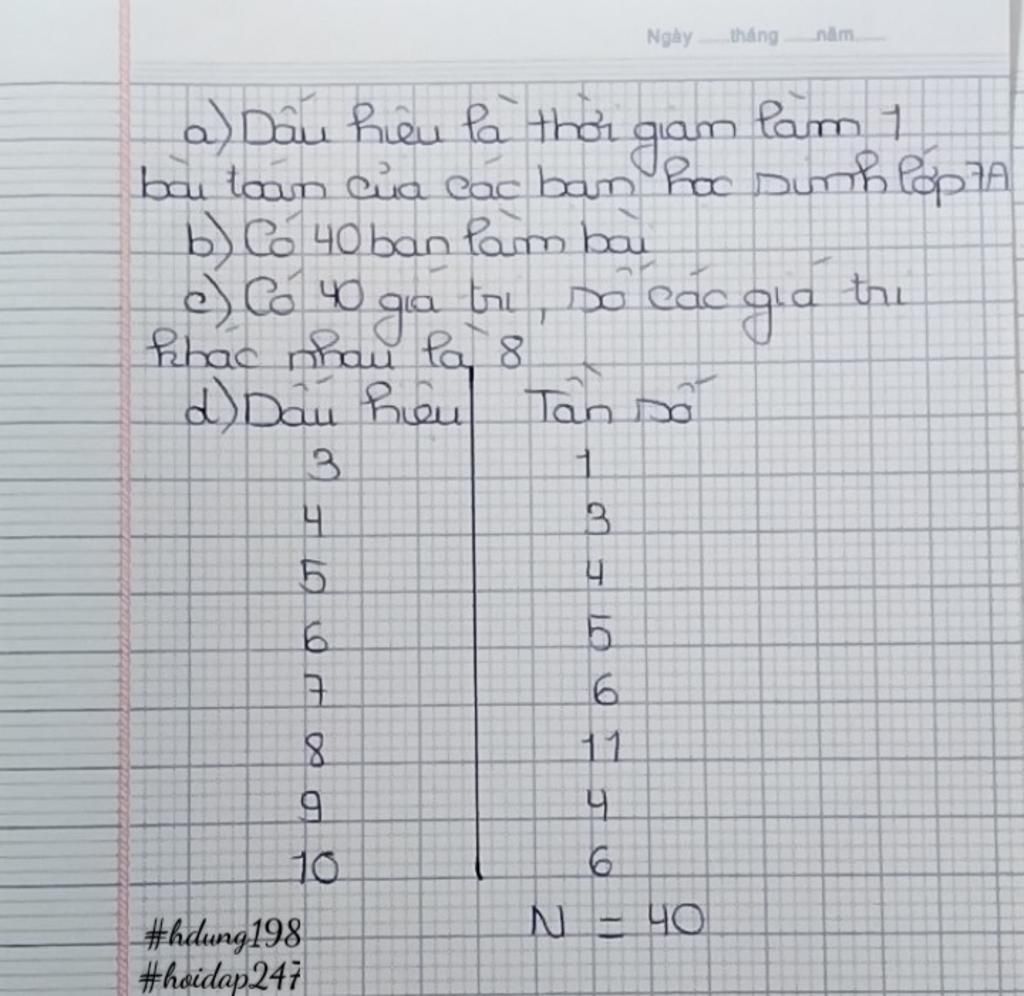 Ngày ......tháng ......năm......
a) Dấu hiệu là thời gian làm 1
bài toán của các bạn học sinh lớp 7A
b) Có 40 bạn làm bài
c) Có 40 giá trị, số các giá trị
khác nhau là 8
d) Dấu hiệu Tần số
3 1
4 3
5 4
6 5
7 6
8 11
9 4
10 6
N = 40
#hdung198
#hoidap247